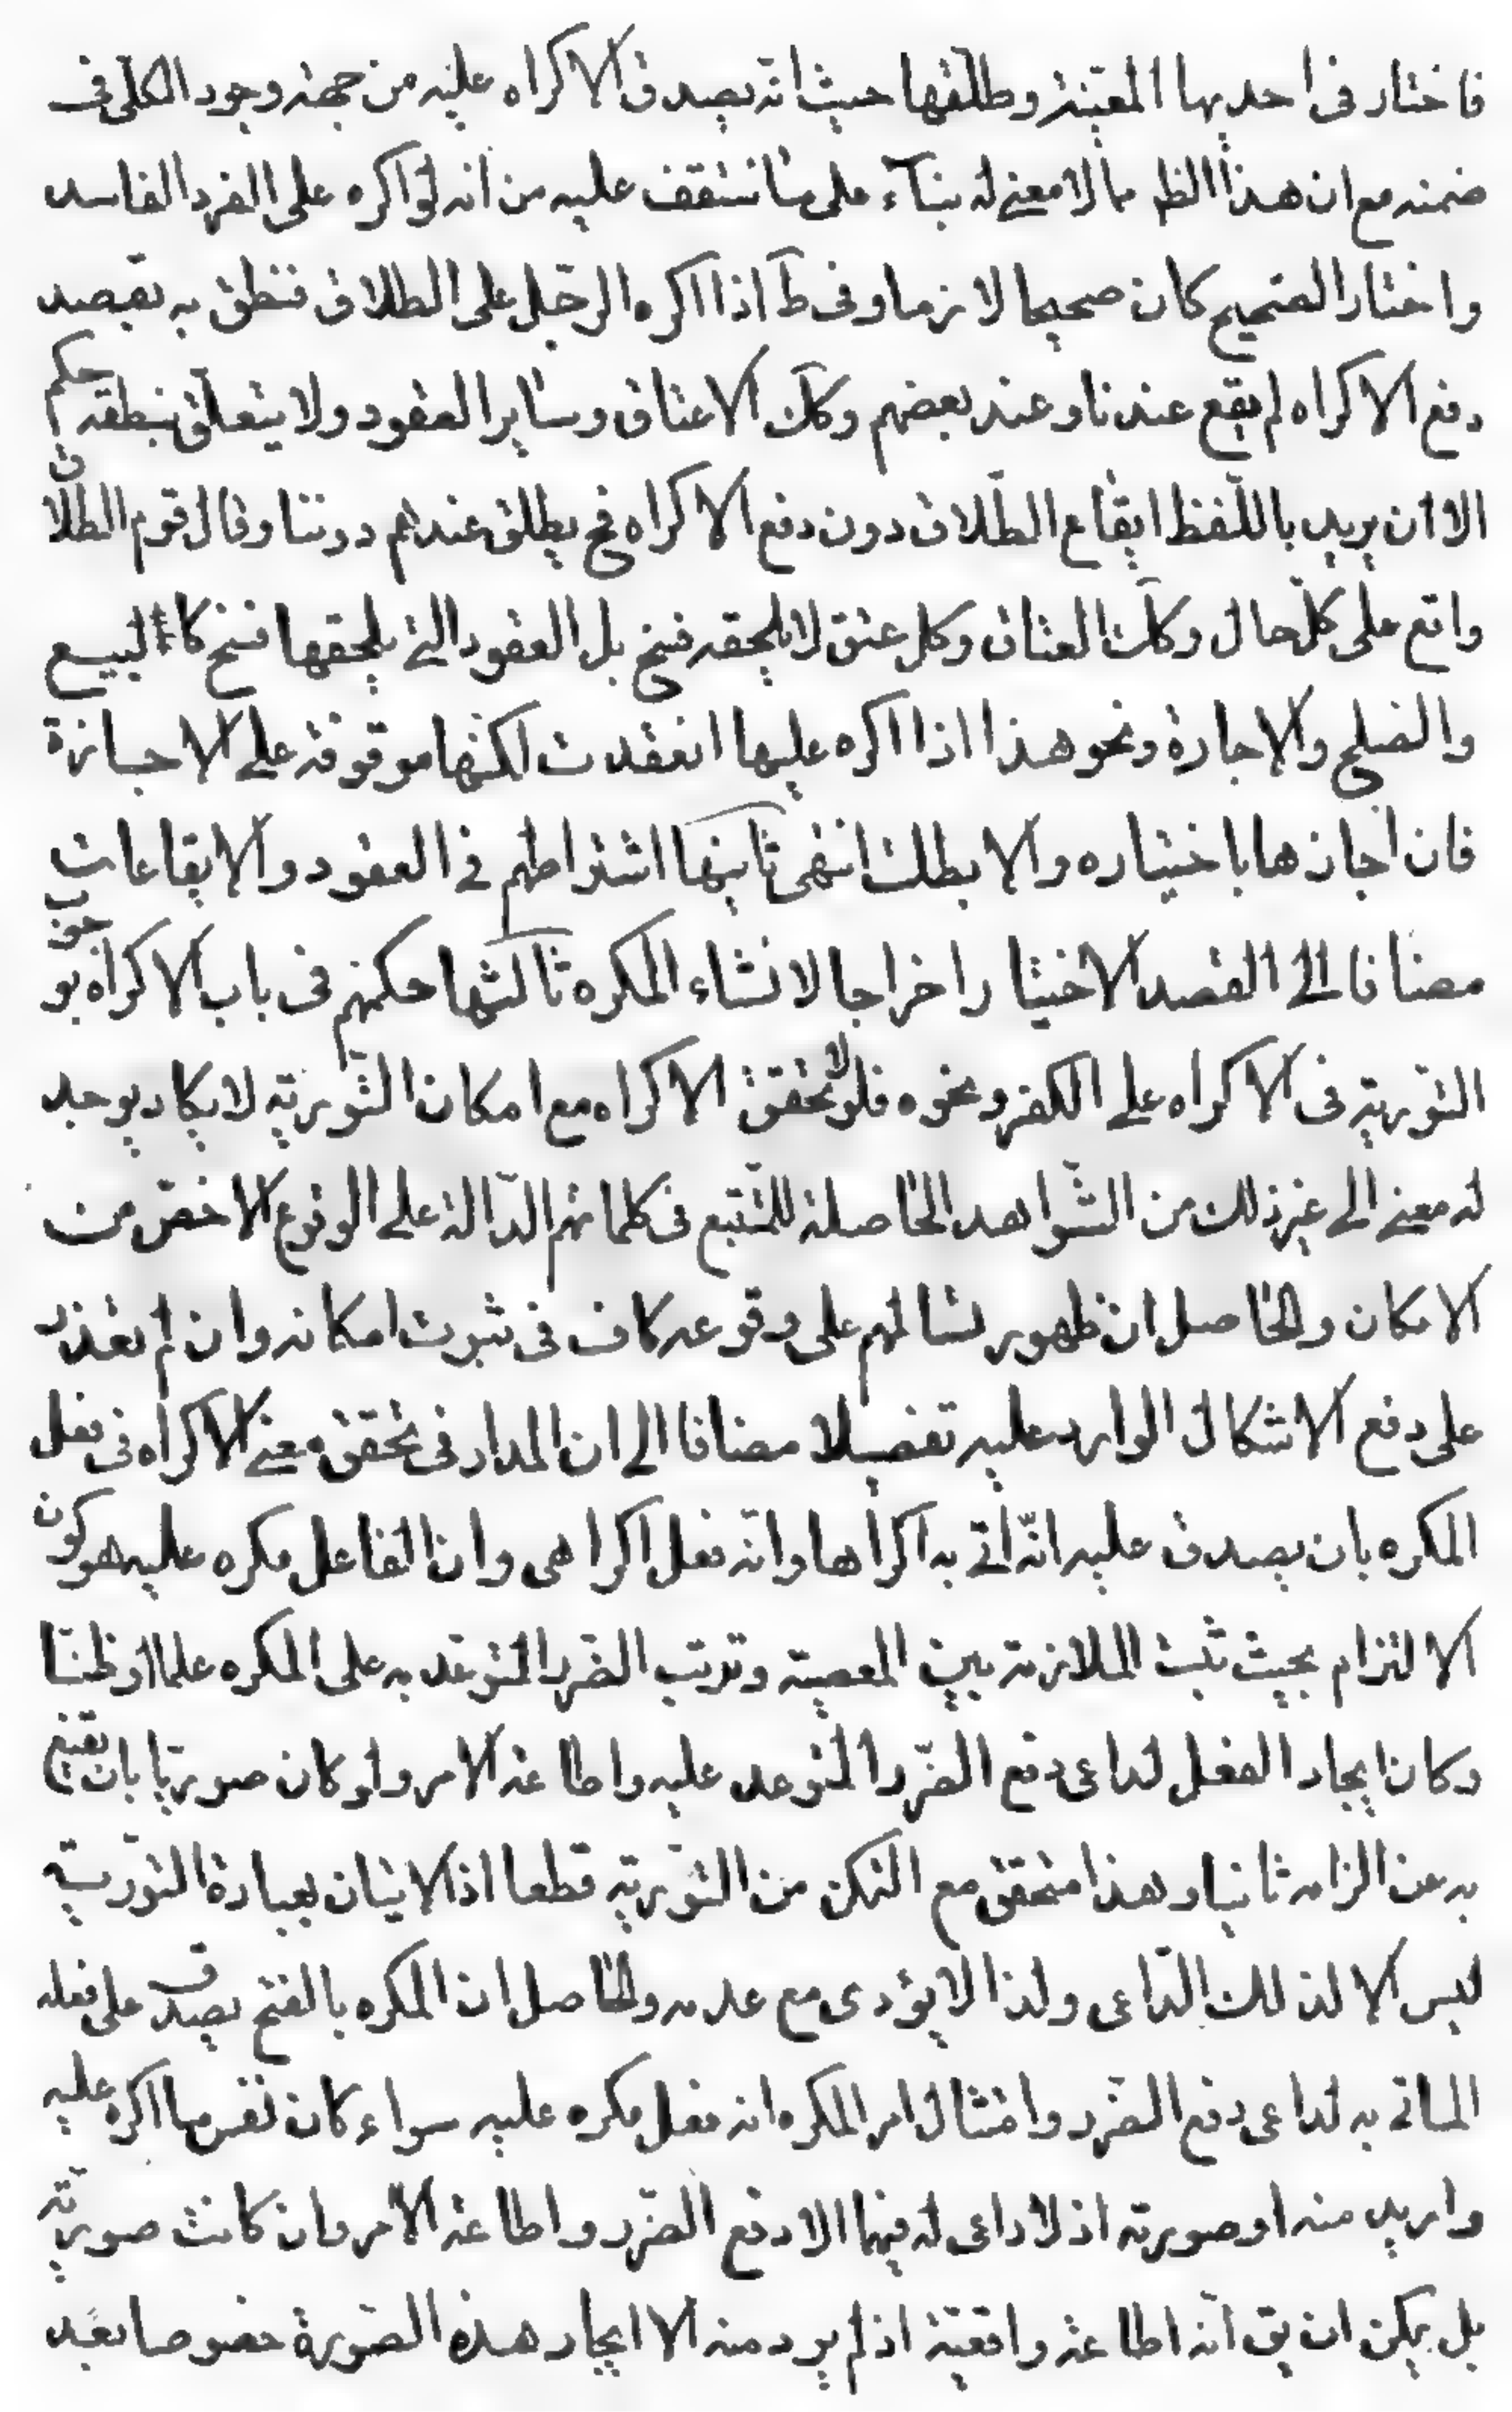 فاختار فى احديها المعيّنة وطلّقها حيث انّه يصدق الاكراه عليه من جهة وجود الكلّى فى
ضمنه مع ان هذا الظ مما لا معنى له بناء على ما ستقف عليه من انه لو اكره على الفرد الفاسد
واختار الصحيح كان صحيحا لازما وفى ط اذا اكره الرّجل على الطلاق فنطق به بقصد
دفع الاكراه لم يقع عندنا وعند بعضهم وكك الاعتاق وساير العقود ولا يتعلّق بنطقه حكم
الا ان يريد باللّفظ ايقاع الطّلاق دون دفع الاكراه فح يطلق عندهم دوننا وقال قوم الطلاق
واقع على كلّ حال وكك العتاق وكل عتق لا يلحقه فسخ بل العقود التى يلحقها فسخ كالبيع
والصلح والاجارة ونحو هذا اذا اكره عليها انعقدت لكنّها موقوفة على الاجازة
فان اجازها باختياره والا بطلت انتهى ثانيها اشتراطهم فى العقود والايقاعات
مضافا الى القصد الاختيار اخراجا لانشاء المكره ثالثها حكمهم فى باب الاكراه بوجوب
التّورية فى الاكراه على الكفر ونحوه فلو لا تحقق الاكراه مع امكان التّورية لا يكاد يوجد
له معنى الى غير ذلك من الشّواهد الحاصلة للمتّتبع فى كلماتهم الدّالة على الوقوع الاخصّ من
الامكان والحاصل ان ظهور تسالمهم على وقوعه كاف فى ثبوت امكانه وان لم نقدر
على دفع الاشكال الوارد عليه تفصيلا مضافا الى ان المدار فى تحقق معنى الاكراه فى فعل
المكره بان يصدق عليه انّه اتى به اكراها وانه فعل اكراهى وان الفاعل مكره عليه هو كون
الالتزام بحيث ثبت الملازمة بين المعصية وترتب الضّرر المتوعّد به على المكره علما او ظنّا
وكان ايجاد الفعل لداعى دفع الضّرر المتوعد عليه واطاعة الامر ولو كان صوريّا بان يقنع
به عن الزامه ثانيا وهذا متحقق مع التمكن من التّورية قطعا اذ الاتيان بعبارة التّورية
ليس الا لذلك الدّاعى ولذا لا يؤدى مع عدمه والحاصل ان المكره بالفتح يصدق على فعله
الماتى به لداعى دفع الضّرر وامتثال امر المكره انه فعل مكره عليه سواء كان نفس ما اكره عليه
واريد منه او صورته اذ لا داعى له فيهما الا دفع الضّرر واطاعة الامر وان كانت صوريّة
بل يمكن ان يق انّه اطاعة واقعيّة اذ لم يرد منه الا ايجاد هذه الصّورة خصوصا بعد